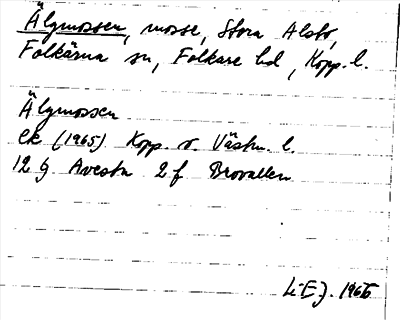 Älgmossen, mosse, Stora Alsbo,
Folkärna sn, Folkare hd, Kopp. l.
Älgmossen
ek (1965) Kopp. o. Västm. l.
12 G Avesta 2 f Brovallen
Li EJ. 1966